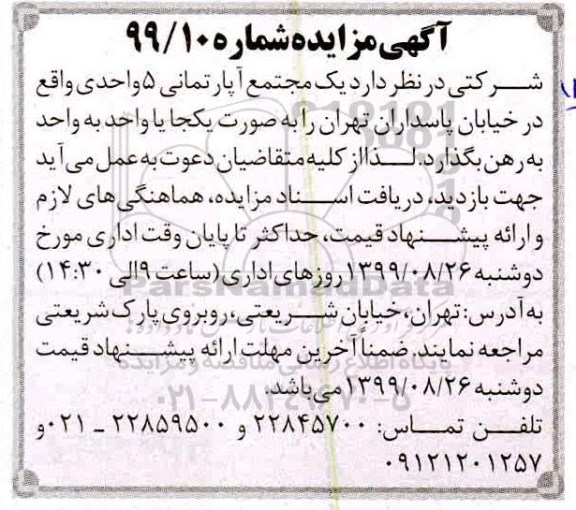 آگهی مزایده شماره ۹۹/۱۰
شرکتی در نظر دارد یک مجتمع آپارتمانی ۵ واحدی واقع
در خیابان پاسداران تهران را به صورت یکجا یا واحد به واحد
به رهن بگذارد. لذا از کلیه متقاضیان دعوت به عمل می آید
جهت بازدید، دریافت اسناد مزایده، هماهنگی های لازم
و ارائه پیشنهاد قیمت، حداکثر تا پایان وقت اداری مورخ
دوشنبه ۱۳۹۹/۰۸/۲۶ روزهای اداری (ساعت ۹ الی ۱۴:۳۰)
به آدرس: تهران، خیابان شریعتی، روبروی پارک شریعتی
مراجعه نمایند. ضمنا آخرین مهلت ارائه پیشنهاد قیمت
دوشنبه ۱۳۹۹/۰۸/۲۶ می باشد.
تلفن تماس: ۲۲۸۴۵۷۰۰ و ۲۲۸۵۹۵۰۰ ـ ۰۲۱ و
۰۹۱۲۱۲۰۱۲۵۷
ParsNamadData
پایگاه اطلاع رسانی مناقصه و مزایده
۰۲۱-۸۸۳۴۹۶۷۰-۵